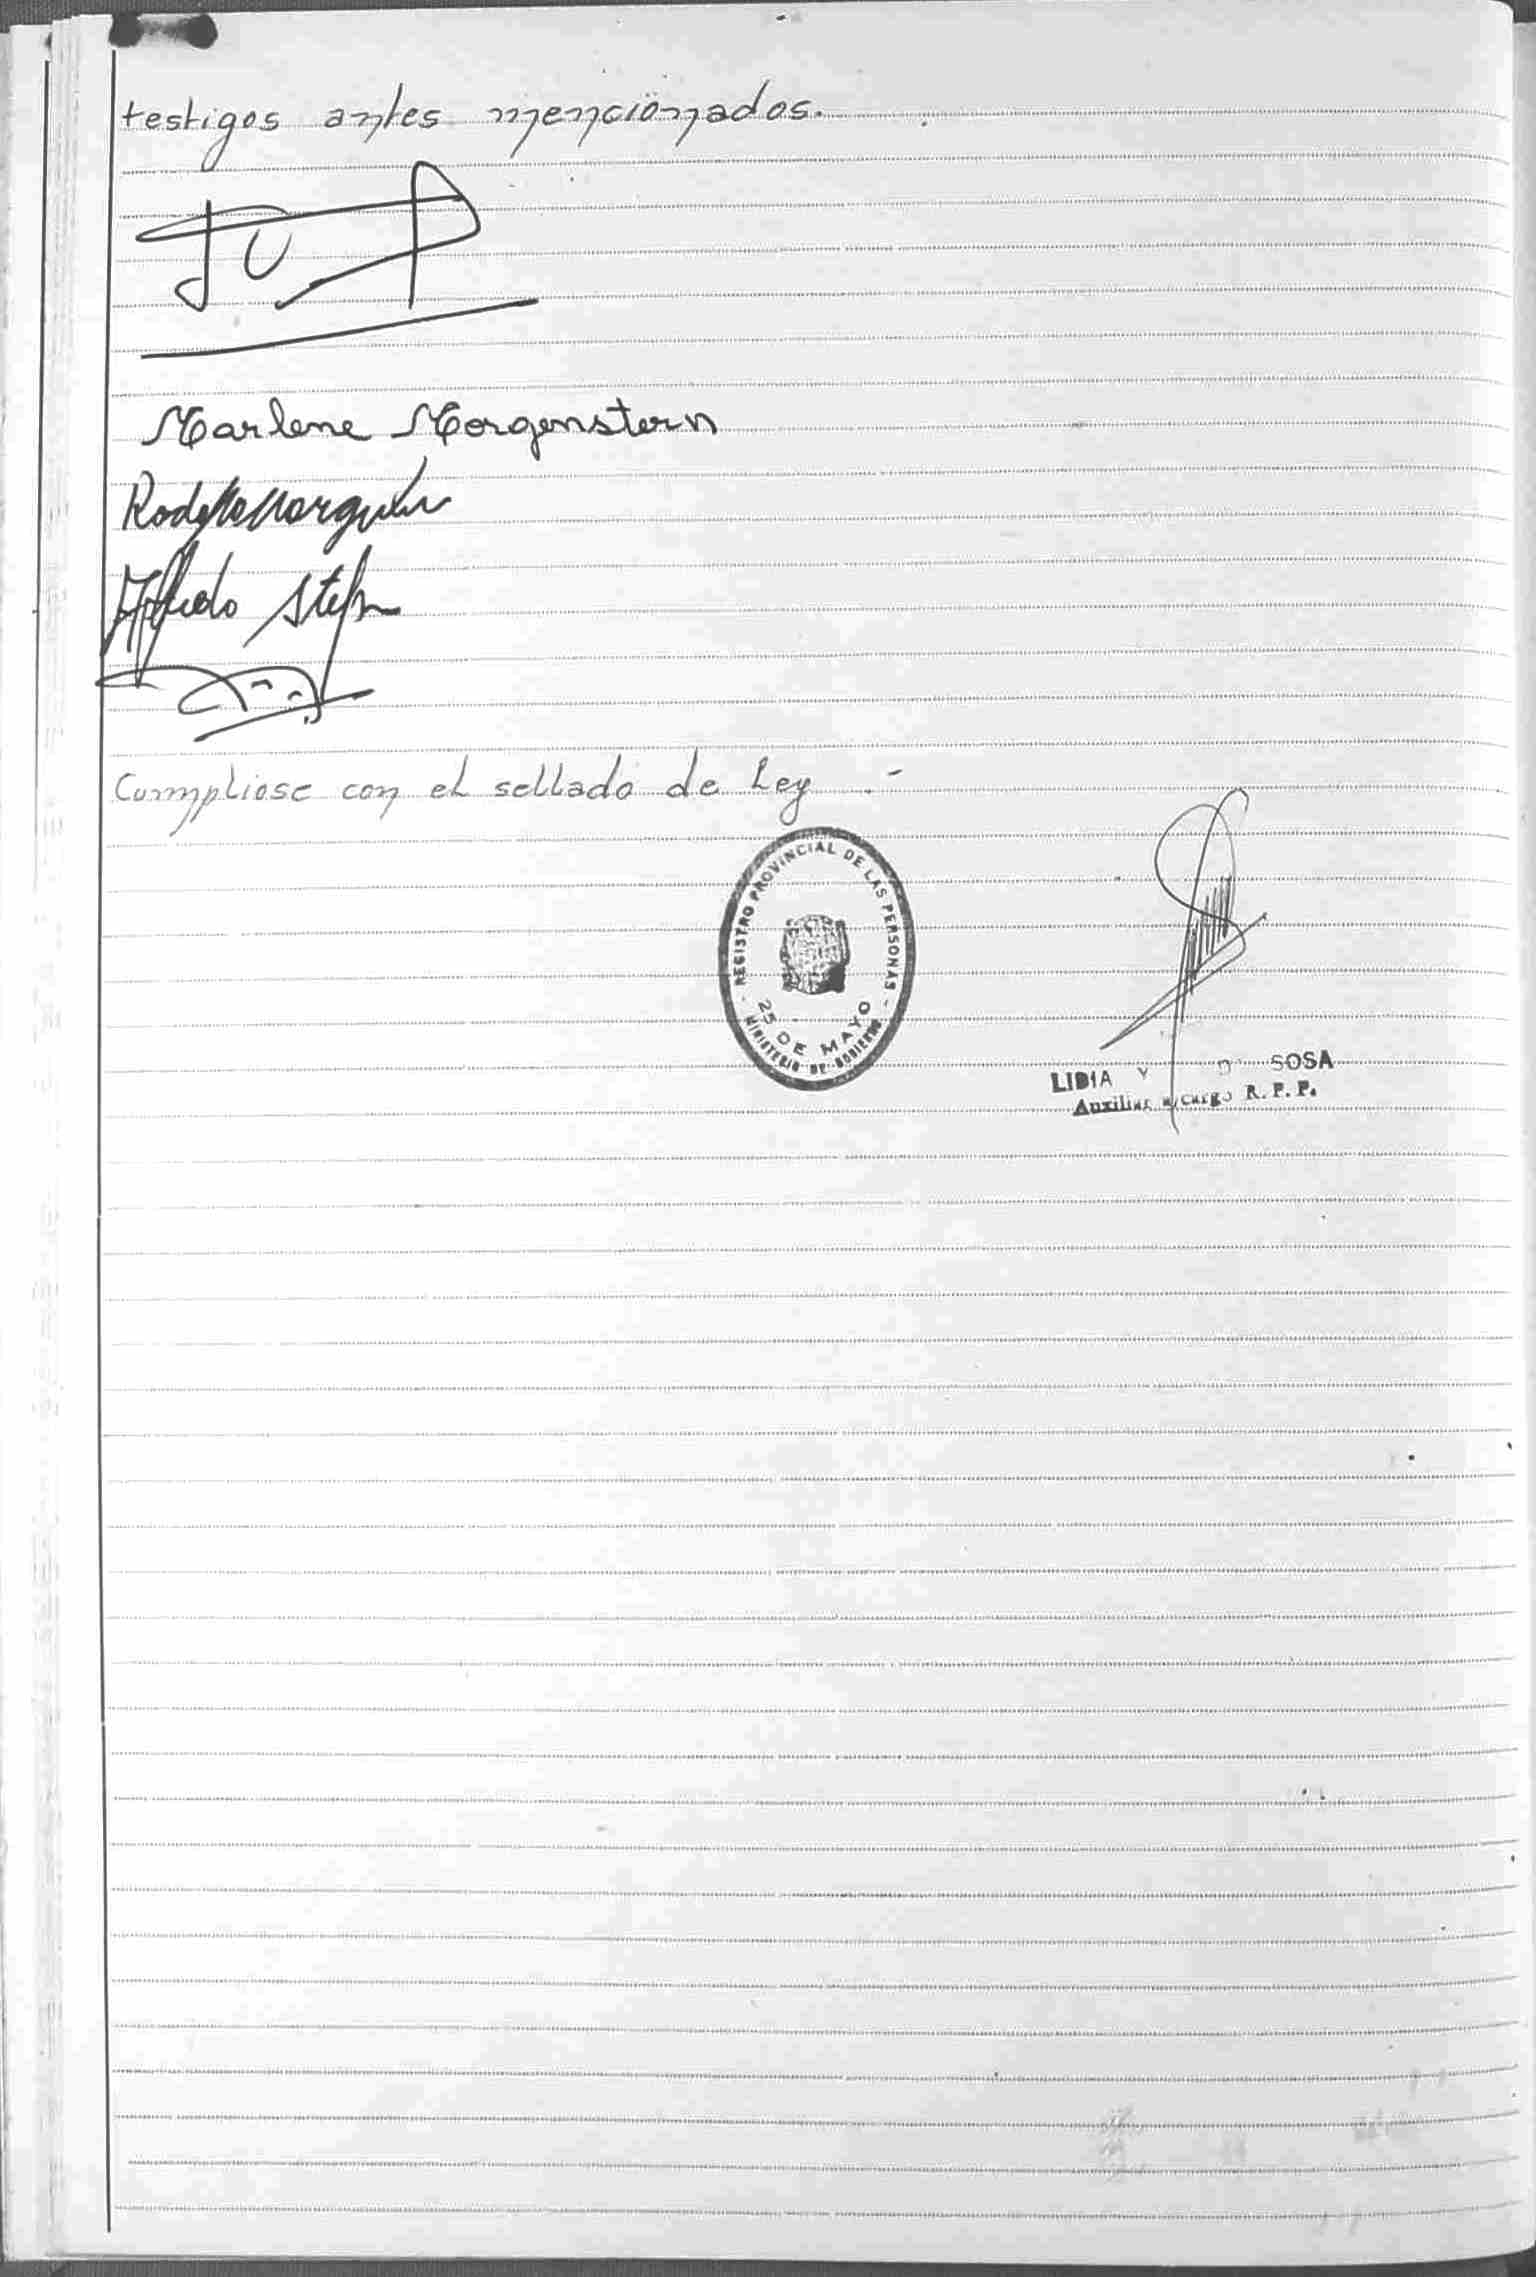 testigos antes mencionados.
Marlene Morgenstern
Alfredo
Cumpliose con el sellado de Ley .-
- REGISTRO PROVINCIAL DE LAS PERSONAS -
25 DE MAYO
MINISTERIO DE GOBIERNO
LIDIA Y D SOSA
Auxiliar a/cargo R. P. P.